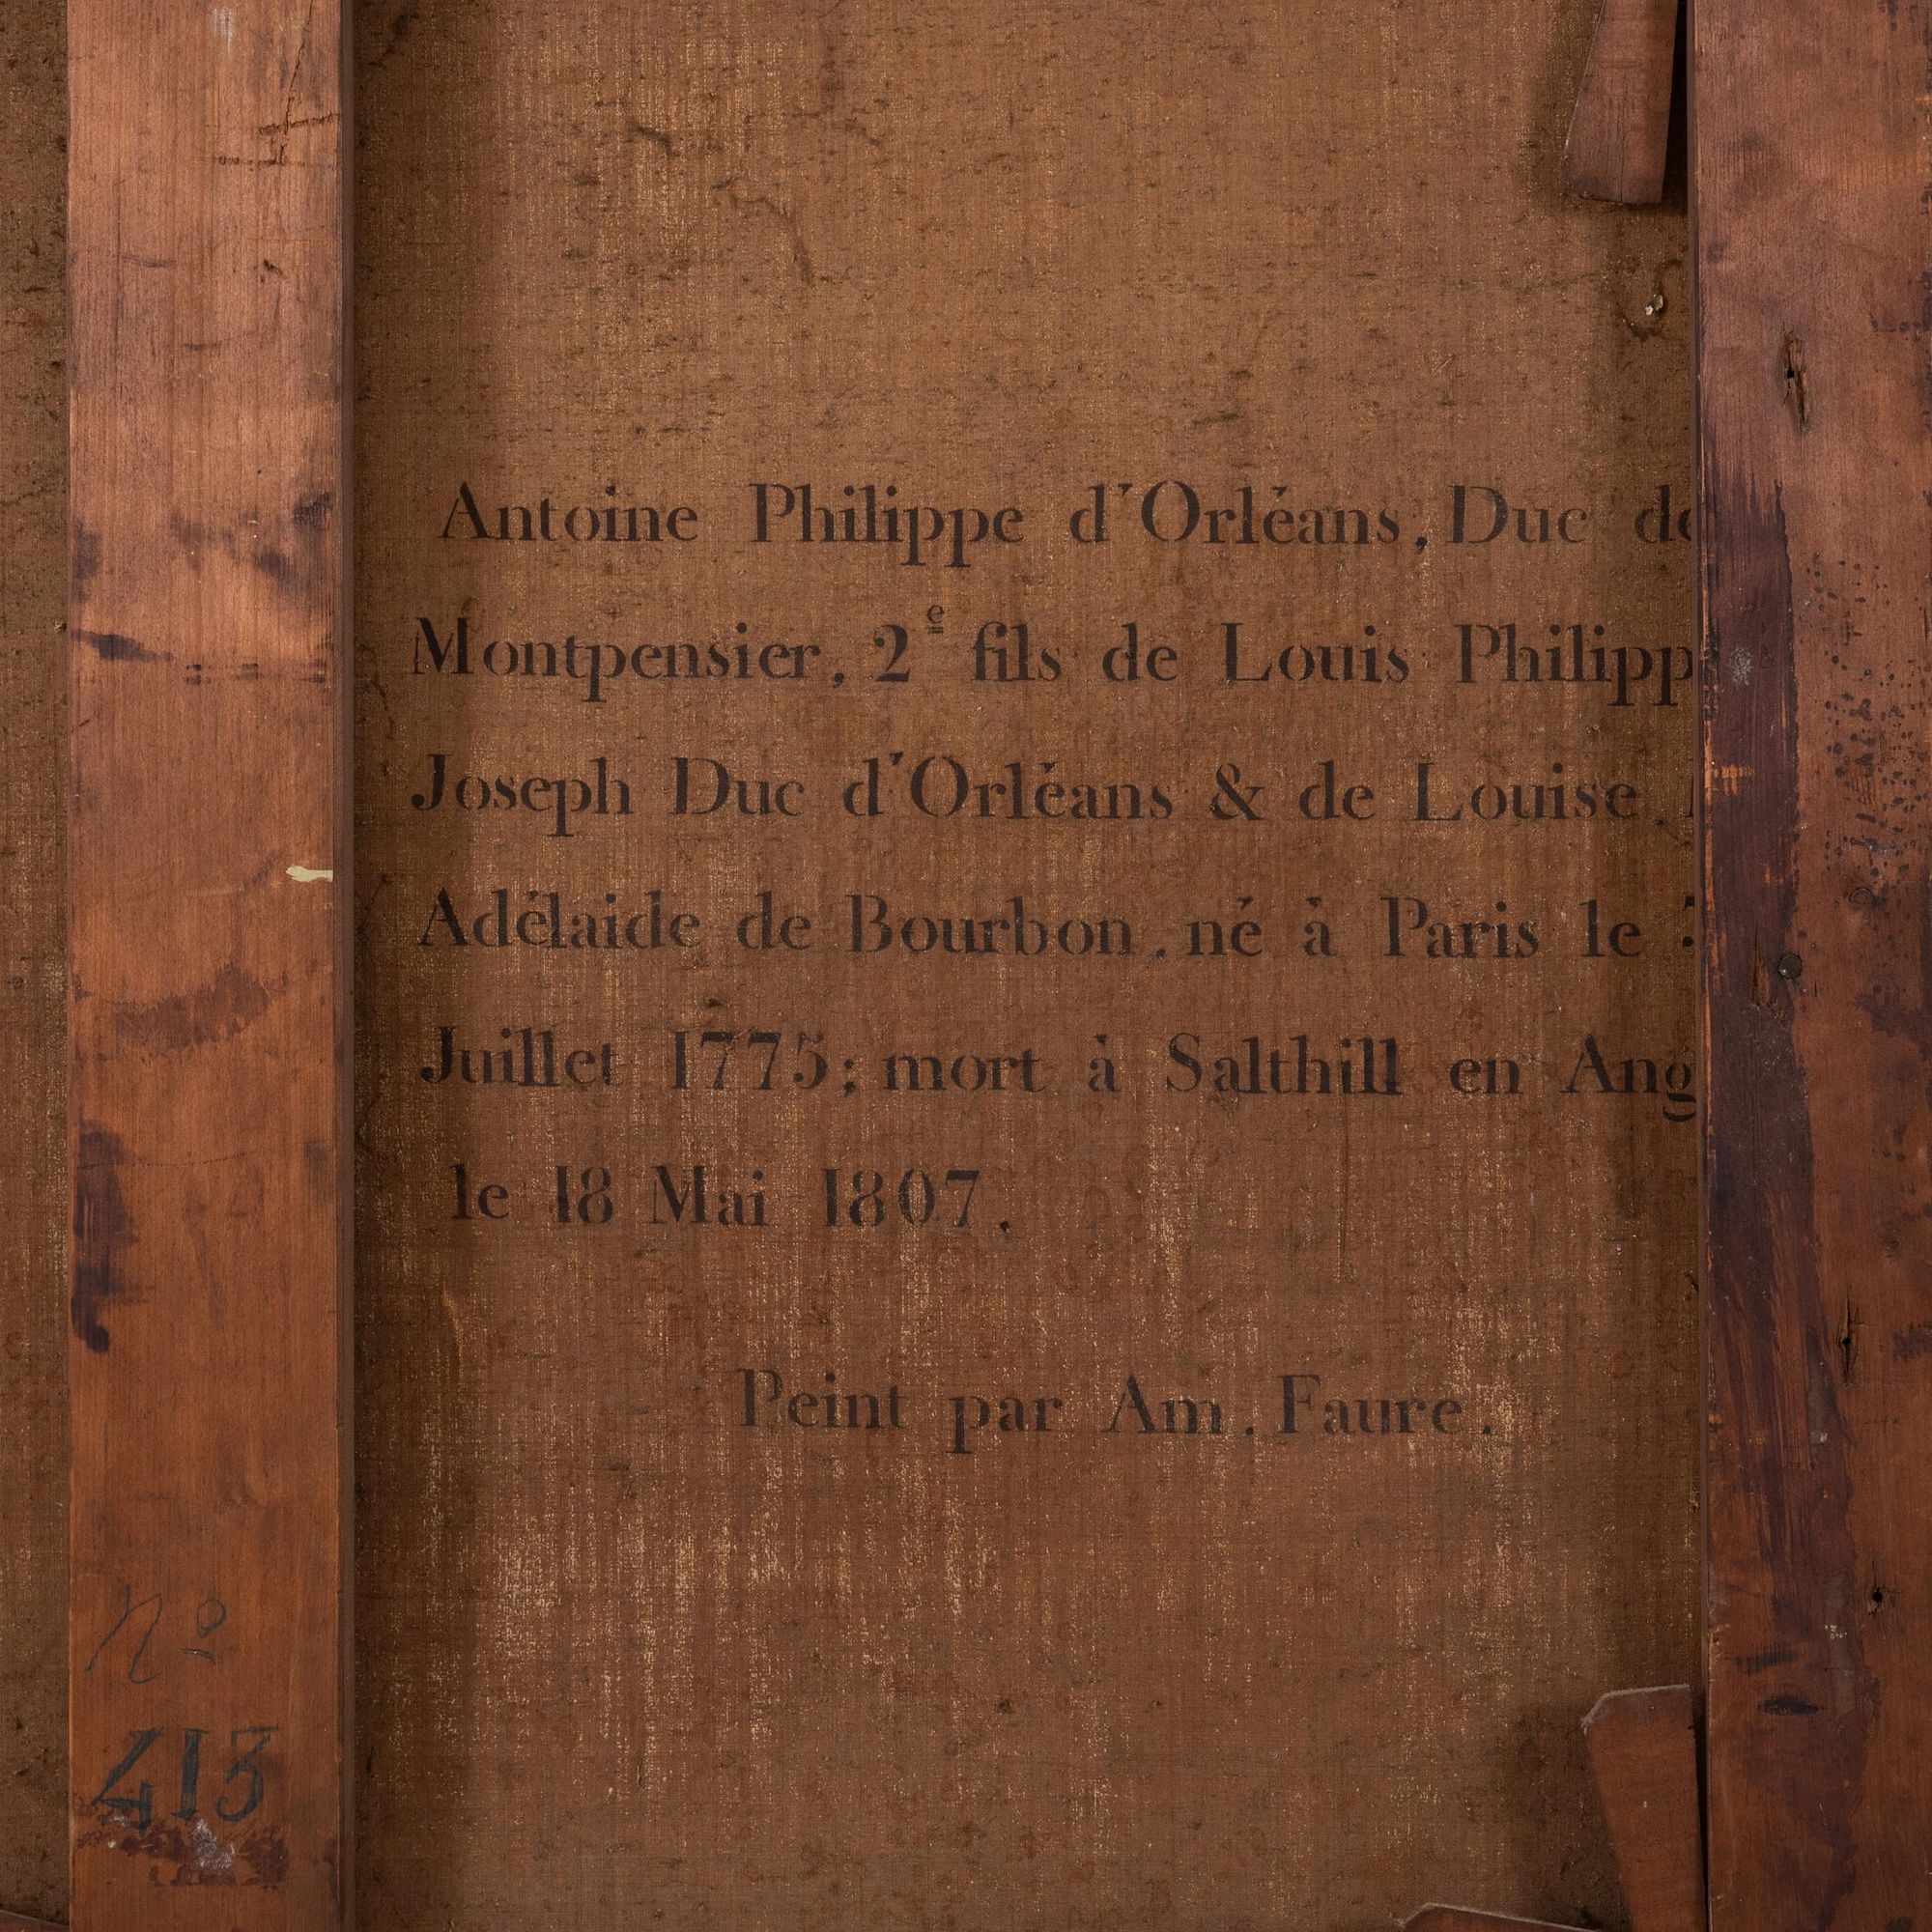 Antoine Philippe d'Orléans, Duc de
Montpensier, 2e fils de Louis Philipp
Joseph Duc d'Orléans & de Louise
Adélaide de Bourbon, né à Paris le
Juillet 1775; mort à Salthill en Ang
le 18 Mai 1807.
Peint par Am. Faure.
no
413